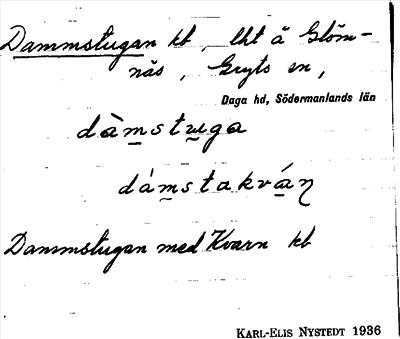 Dammstugan kt, lht å Glöm-
näs, Gryts sn,
Daga hd, Södermanlands län
dàmstuga
dámstakván
Dammstugan med Kvarn kt
KARL-ELIS NYSTEDT 1936